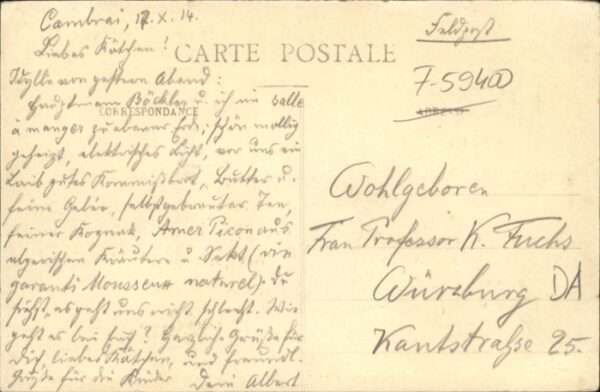 Cambrai, 17.X.14.
Liebes Kätchen!
CARTE POSTALE
Feldpost
Idylle von gestern Abend:
Hauptmann Böckler u. ich im salle
CORRESPONDANCE
à manger zu ebener Erde; schön mollig
geheizt, elektrisches Licht, vor uns ein
Laib gutes Kommißbrot, Butter u.
feine selbstgebrauter Tee,
feiner Kognak, Amer Picon aus
algerischen Kräutern u. Sekt (vin
garanti Mousseux naturel). Du
siehst, es geht uns nicht schlecht. Wie
geht es bei Euch? Herzliche Grüße für
Dich liebes Kätchen, und freundl.
Grüße für die Kinder Dein Albert
7-5940
ADRESSE
Wohlgeboren
Frau Professor K. Fuchs
Würzburg DA
Kantstraße 25.